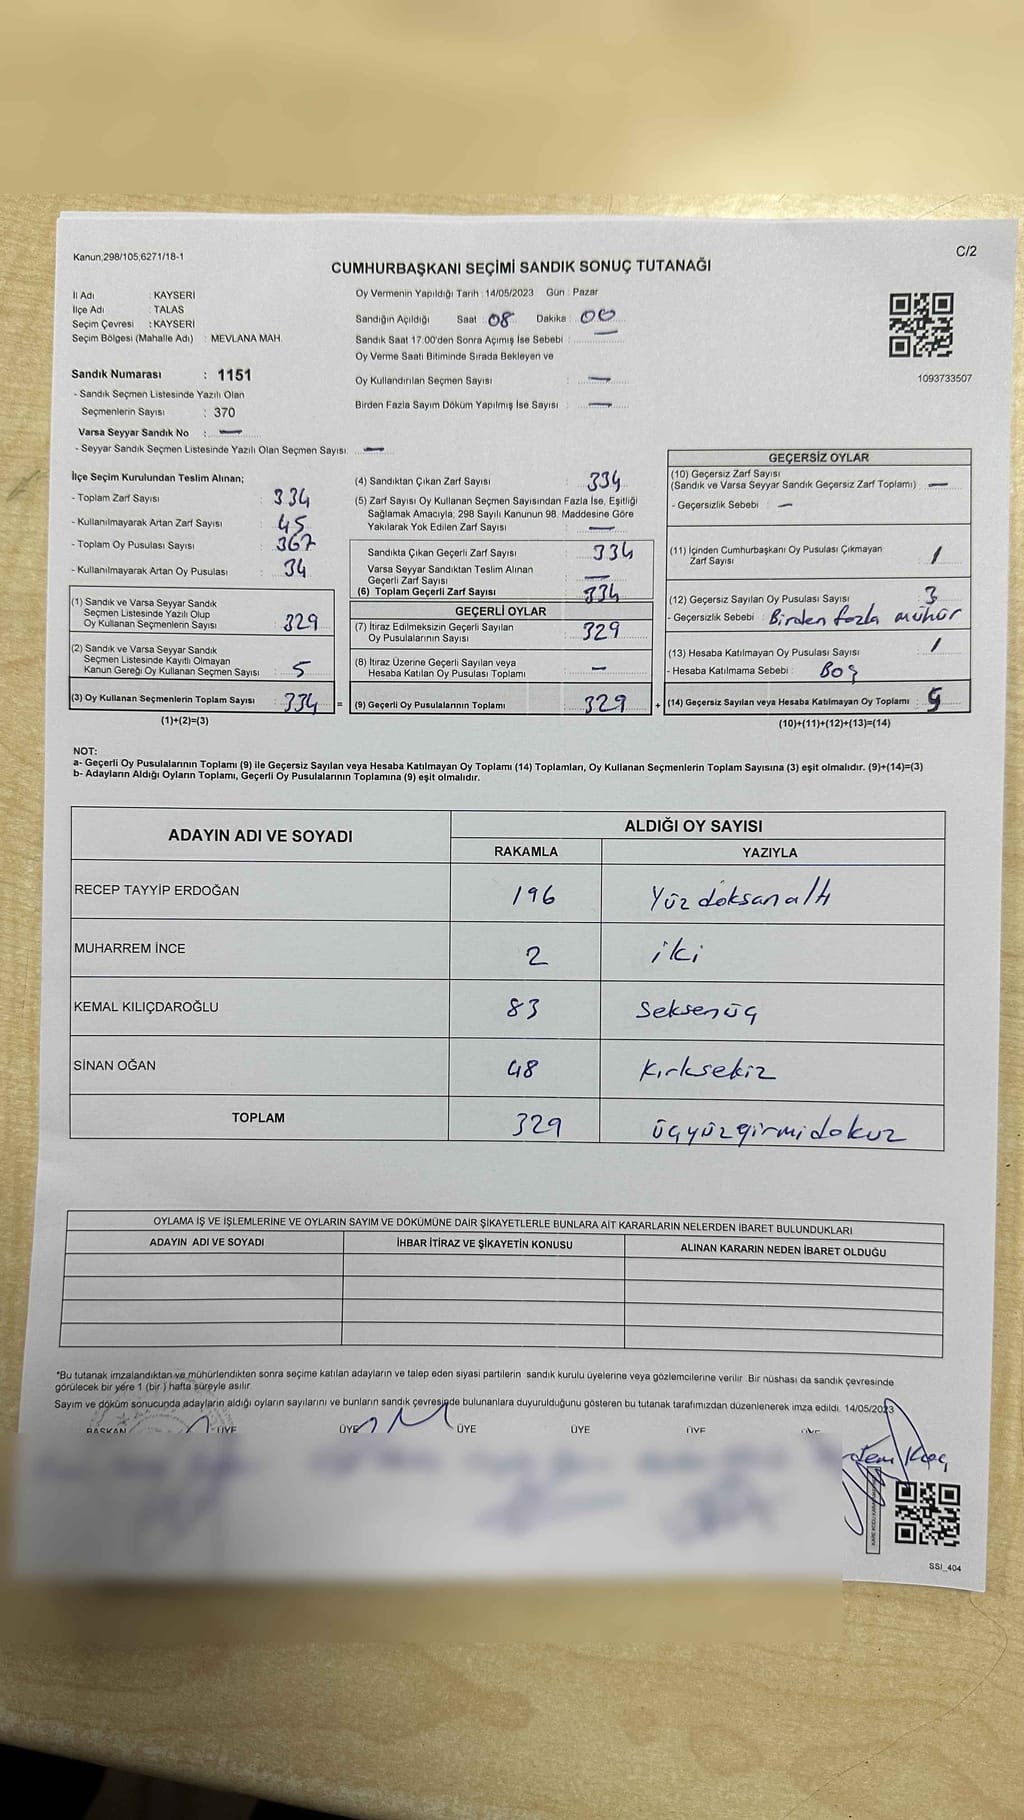 Kanun,298/105,6271/18-1
C/2
CUMHURBAŞKANI SEÇİMİ SANDIK SONUÇ TUTANAĞI
İl Adı : KAYSERİ
İlçe Adı : TALAS
Seçim Çevresi : KAYSERİ
Seçim Bölgesi (Mahalle Adı) : MEVLANA MAH.
Sandık Numarası : 1151
- Sandık Seçmen Listesinde Yazılı Olan
Seçmenlerin Sayısı : 370
Varsa Seyyar Sandık No : —
- Seyyar Sandık Seçmen Listesinde Yazılı Olan Seçmen Sayısı: —
Oy Vermenin Yapıldığı Tarih : 14/05/2023 Gün : Pazar
Sandığın Açıldığı Saat : 08 Dakika : 00
Sandık Saat 17.00'den Sonra Açımış İse Sebebi : —
Oy Verme Saati Bitiminde Sırada Bekleyen ve
Oy Kullandırılan Seçmen Sayısı : —
Birden Fazla Sayım Döküm Yapılmış İse Sayısı : —
1093733507
İlçe Seçim Kurulundan Teslim Alınan;
- Toplam Zarf Sayısı : 334
- Kullanılmayarak Artan Zarf Sayısı : 45
- Toplam Oy Pusulası Sayısı : 367
- Kullanılmayarak Artan Oy Pusulası : 34
(1) Sandık ve Varsa Seyyar Sandık
Seçmen Listesinde Yazılı Olup
Oy Kullanan Seçmenlerin Sayısı : 329
(2) Sandık ve Varsa Seyyar Sandık
Seçmen Listesinde Kayıtlı Olmayan
Kanun Gereği Oy Kullanan Seçmen Sayısı : 5
(3) Oy Kullanan Seçmenlerin Toplam Sayısı : 334
(1)+(2)=(3)
(4) Sandıktan Çıkan Zarf Sayısı : 334
(5) Zarf Sayısı Oy Kullanan Seçmen Sayısından Fazla İse, Eşitliği
Sağlamak Amacıyla; 298 Sayılı Kanunun 98. Maddesine Göre
Yakılarak Yok Edilen Zarf Sayısı : —
Sandıkta Çıkan Geçerli Zarf Sayısı : 334
Varsa Seyyar Sandıktan Teslim Alınan
Geçerli Zarf Sayısı : —
(6) Toplam Geçerli Zarf Sayısı : 334
GEÇERLİ OYLAR
(7) İtiraz Edilmeksizin Geçerli Sayılan
Oy Pusulalarının Sayısı : 329
(8) İtiraz Üzerine Geçerli Sayılan veya
Hesaba Katılan Oy Pusulası Toplamı : —
= (9) Geçerli Oy Pusulalarının Toplamı : 329
GEÇERSİZ OYLAR
(10) Geçersiz Zarf Sayısı
(Sandık ve Varsa Seyyar Sandık Geçersiz Zarf Toplamı) : —
- Geçersizlik Sebebi : —
(11) İçinden Cumhurbaşkanı Oy Pusulası Çıkmayan
Zarf Sayısı : 1
(12) Geçersiz Sayılan Oy Pusulası Sayısı : 3
- Geçersizlik Sebebi : Birden fazla mühür
(13) Hesaba Katılmayan Oy Pusulası Sayısı : 1
- Hesaba Katılmama Sebebi : Boş
+ (14) Geçersiz Sayılan veya Hesaba Katılmayan Oy Toplamı : 5
(10)+(11)+(12)+(13)=(14)
NOT:
a- Geçerli Oy Pusulalarının Toplamı (9) ile Geçersiz Sayılan veya Hesaba Katılmayan Oy Toplamı (14) Toplamları, Oy Kullanan Seçmenlerin Toplam Sayısına (3) eşit olmalıdır. (9)+(14)=(3)
b- Adayların Aldığı Oyların Toplamı, Geçerli Oy Pusulalarının Toplamına (9) eşit olmalıdır.
ADAYIN ADI VE SOYADI
ALDIĞI OY SAYISI
RAKAMLA YAZIYLA
RECEP TAYYİP ERDOĞAN 196 Yüz doksan altı
MUHARREM İNCE 2 iki
KEMAL KILIÇDAROĞLU 83 Seksenüç
SİNAN OĞAN 48 Kırksekiz
TOPLAM 329 üçyüzyirmidokuz
OYLAMA İŞ VE İŞLEMLERİNE VE OYLARIN SAYIM VE DÖKÜMÜNE DAİR ŞİKAYETLERLE BUNLARA AİT KARARLARIN NELERDEN İBARET BULUNDUKLARI
ADAYIN ADI VE SOYADI İHBAR İTİRAZ VE ŞİKAYETİN KONUSU ALINAN KARARIN NEDEN İBARET OLDUĞU
*Bu tutanak imzalandıktan ve mühürlendikten sonra seçime katılan adayların ve talep eden siyasi partilerin sandık kurulu üyelerine veya gözlemcilerine verilir. Bir nüshası da sandık çevresinde
görülecek bir yere 1 (bir ) hafta süreyle asılır.
Sayım ve döküm sonucunda adayların aldığı oyların sayılarını ve bunların sandık çevresinde bulunanlara duyurulduğunu gösteren bu tutanak tarafımızdan düzenlenerek imza edildi. 14/05/2023
BAŞKAN ÜYE ÜYE ÜYE ÜYE ÜYE ÜYE
SSI_404